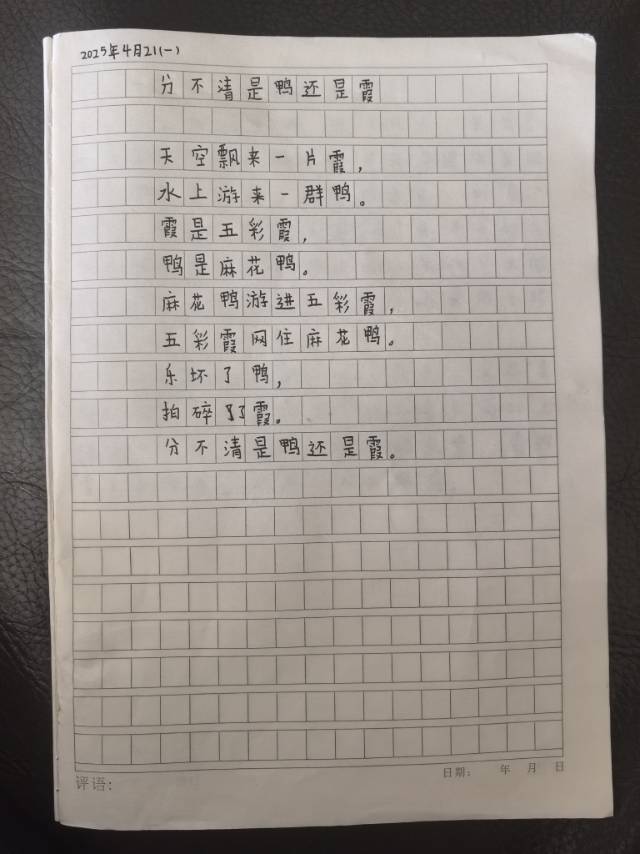 2025年4月21(一)
分不清是鸭还是霞
天空飘来一片霞,
水上游来一群鸭。
霞是五彩霞,
鸭是麻花鸭。
麻花鸭游进五彩霞,
五彩霞网住麻花鸭。
乐坏了鸭,
拍碎了了霞。
分不清是鸭还是霞。
评语:
日期: 年 月 日